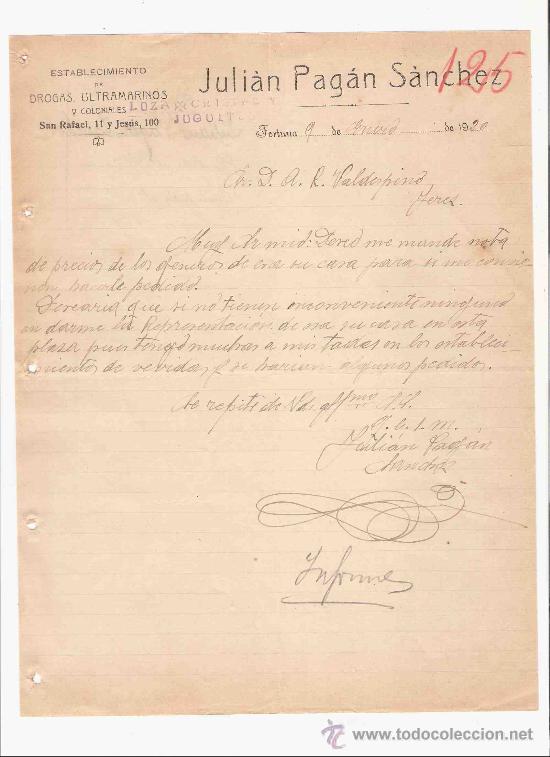 ESTABLECIMIENTO
DE
DROGAS, ULTRAMARINOS
Y COLONIALES
LOZA, CRISTAL Y
JUGUETES
San Rafael, 11 y Jesús, 100
Julián Pagán Sànchez
125
Fortuna 9 de Enero de 1920
Sr. D. A. R. Valdespino
Jerez
Muy Sr mio: Deseo me mande nota
de precios de los generos de esa su casa para si me convi
nen hacerle pedido.
Desearia que si no tienen inconveniente ninguno
en darme la Representacion de esa su casa en esta
plaza pues tengo muchas amistades en los establec
imientos de vevidas y se harian algunos pedidos.
Se repite de Vd. affmo S.S.
q. e. s. m.
Julián Pagan
Sanchez
Informes
www.todocoleccion.net